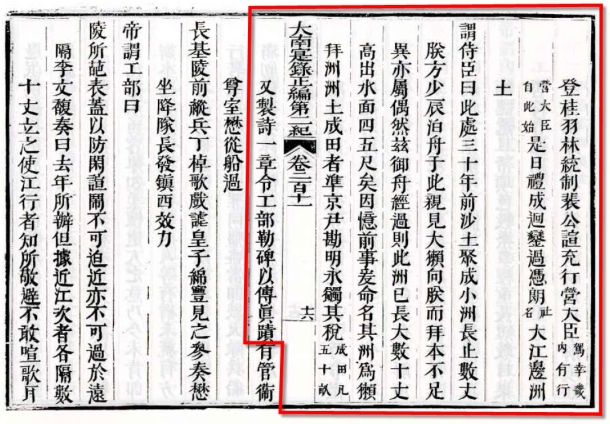 登桂羽林統制裴公諠充行營大臣駕幸畿內有行
營大臣自此始是日禮成迴鑾過憑朗社名大江邊洲
土
謂侍臣曰此處三十年前沙土聚成小洲長止數丈
朕方少辰泊舟于此親見大獺向朕而拜本不足
異亦屬偶然茲御舟經過則此洲已長大數十丈
高出水面四五尺矣因憶前事爰命名其洲為獺
拜洲洲土成田者準京尹勘明永蠲其稅成田凡五十畝
大南寔錄正編第二紀 卷二百十一 十六
又製詩一章令工部勒碑以傳眞蹟有管衛
尊室懋從船過
長基陵前縱兵丁棹歌戲謔皇子綿豐見之參奏懋
坐降隊長發鎮西效力
帝謂工部曰
陵所 表蓋以防閑諠鬧不可迫近亦不可過於遠
隔李文馥奏曰去年所辦但據近江次者各隔數
十丈立之使江行者知所敬避不敢喧歌月